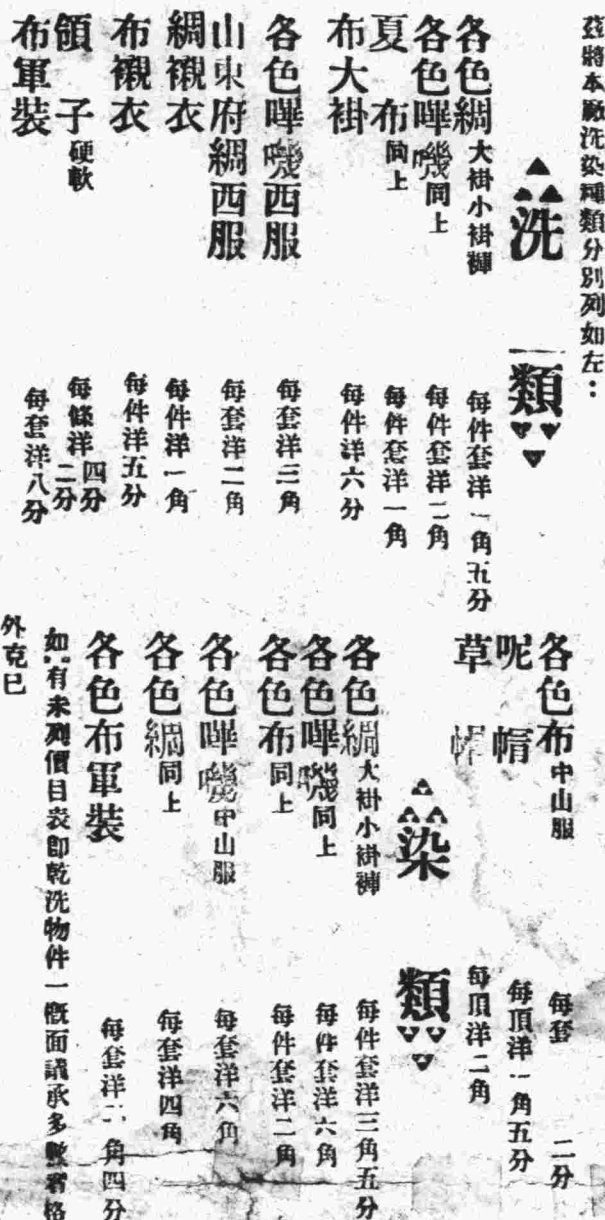 茲將本厰洗染種類分別列如左：
洗類
各色綢大褂小褂褲 每件套洋一角五分
各色嗶嘰同上 每件套洋二角
夏布同上 每件套洋一角
布大褂 每件洋六分
各色嗶嘰西服 每套洋三角
山東府綢西服 每套洋二角
綢襯衣 每件洋一角
布襯衣 每件洋五分
領子硬軟 每條洋四分二分
布軍裝 每套洋八分
各色布中山服 每套 二分
呢帽 每頂洋一角五分
草帽 每頂洋二角
染類
各色綢大褂小褂褲 每件套洋三角五分
各色嗶嘰同上 每件套洋六角
各色布同上 每件套洋二角
各色嗶嘰中山服 每套洋六角
各色綢同上 每套洋四角
各色布軍裝 每套洋二角四分
如有未列價目表即乾洗物件一概面議承多數者格
外克已